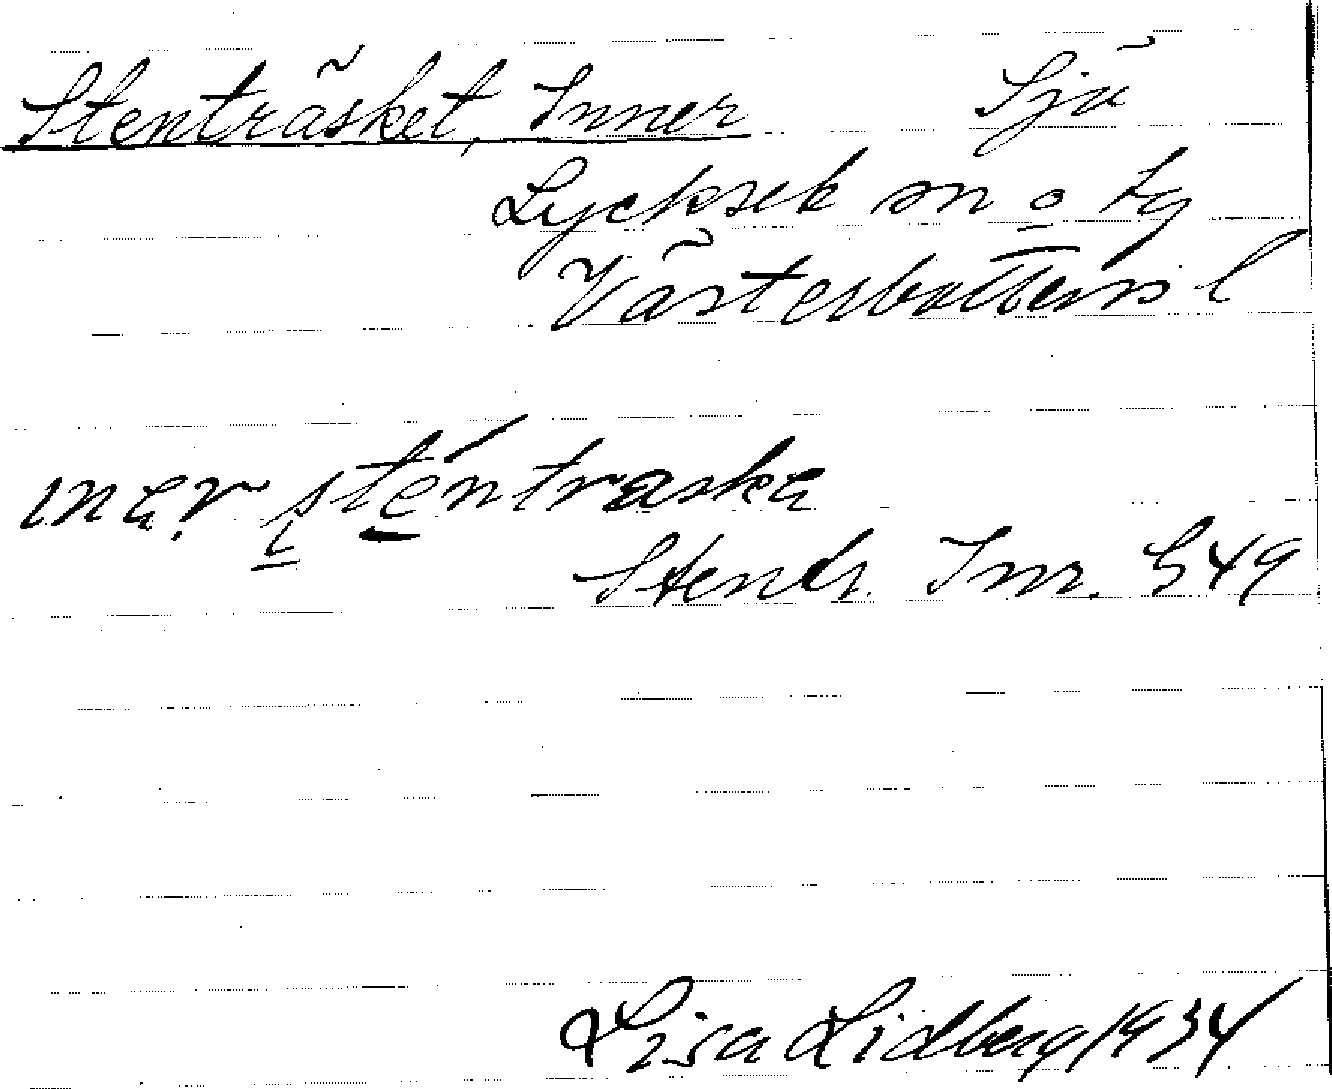 Stenträsket, Inner Sjö
Lycksele sn o tg
Västerbottens l
ɩnər stentraskə
Stentr. Inr. G49
Lisa Lidberg 1934